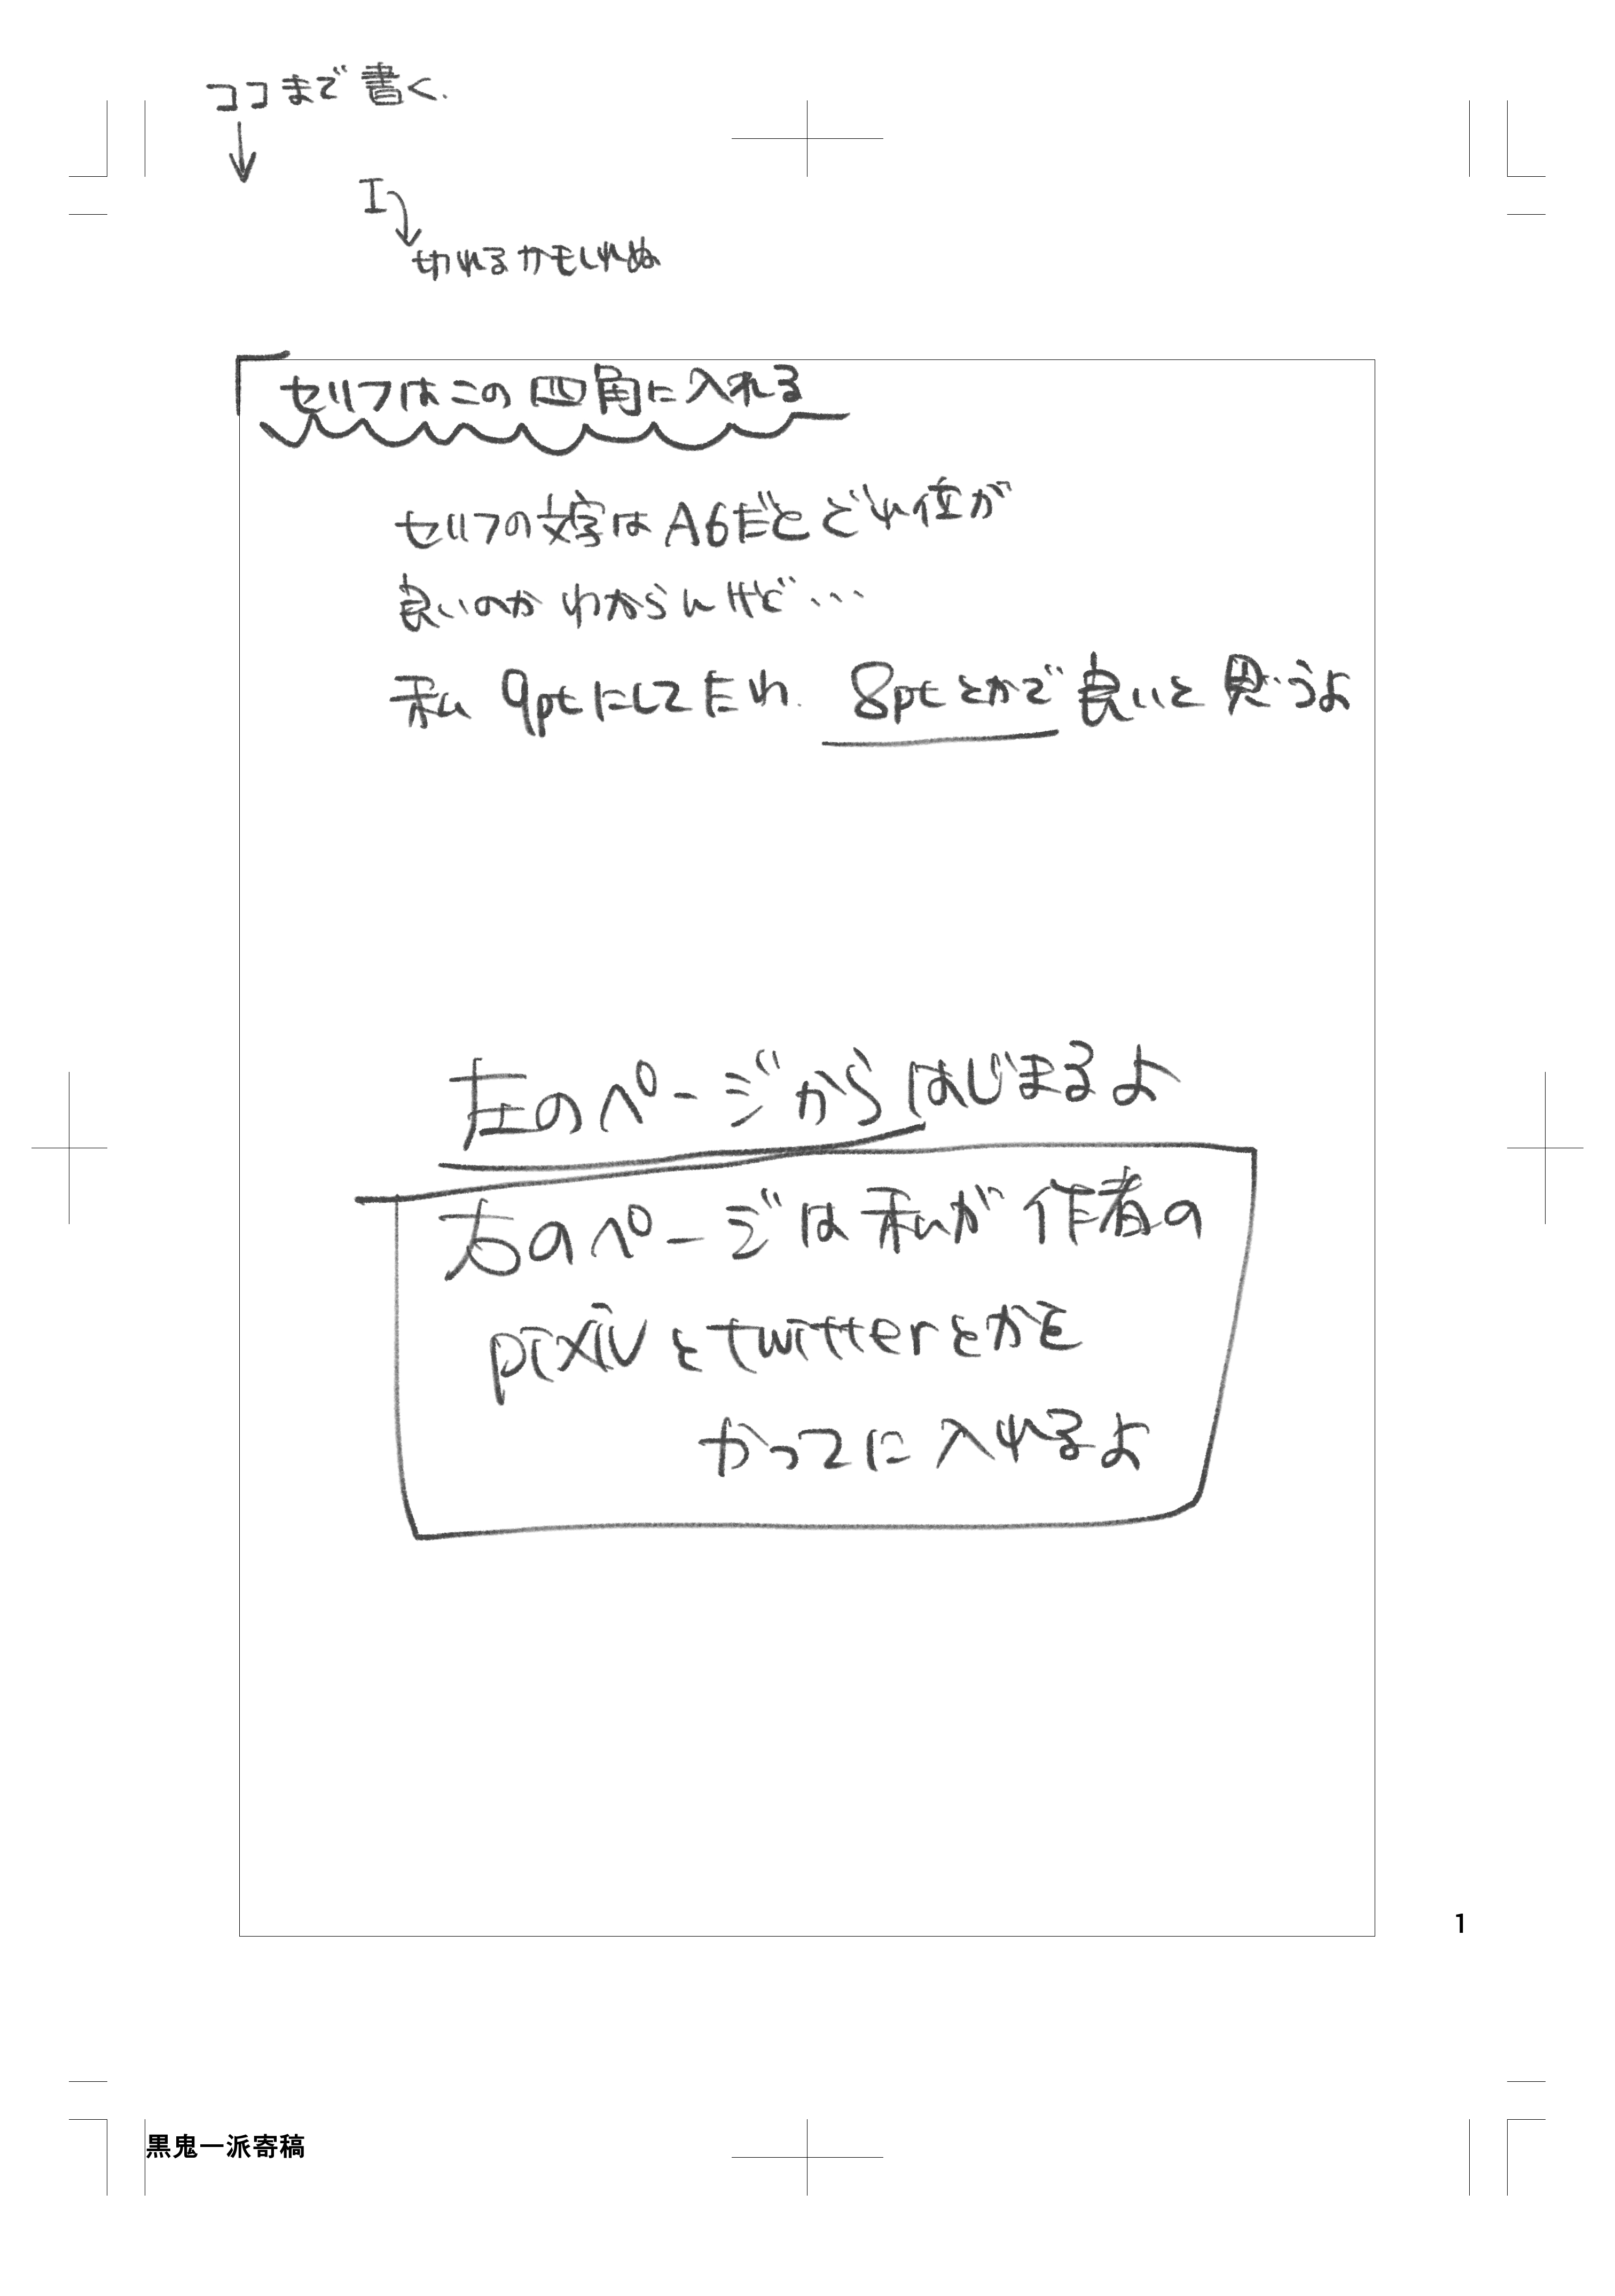 ココまで書く.
切れるかもしれぬ
セリフはこの四角に入れる
セリフの文字はA6だとどれ位が
良いのかわからんけど…
私 9ptにしてたわ. 8ptとかで良いと思うよ
左のページからはじまるよ
右のページは私が作者の
pixivとtwitterとかを
かってに入れるよ
1
黒鬼一派寄稿